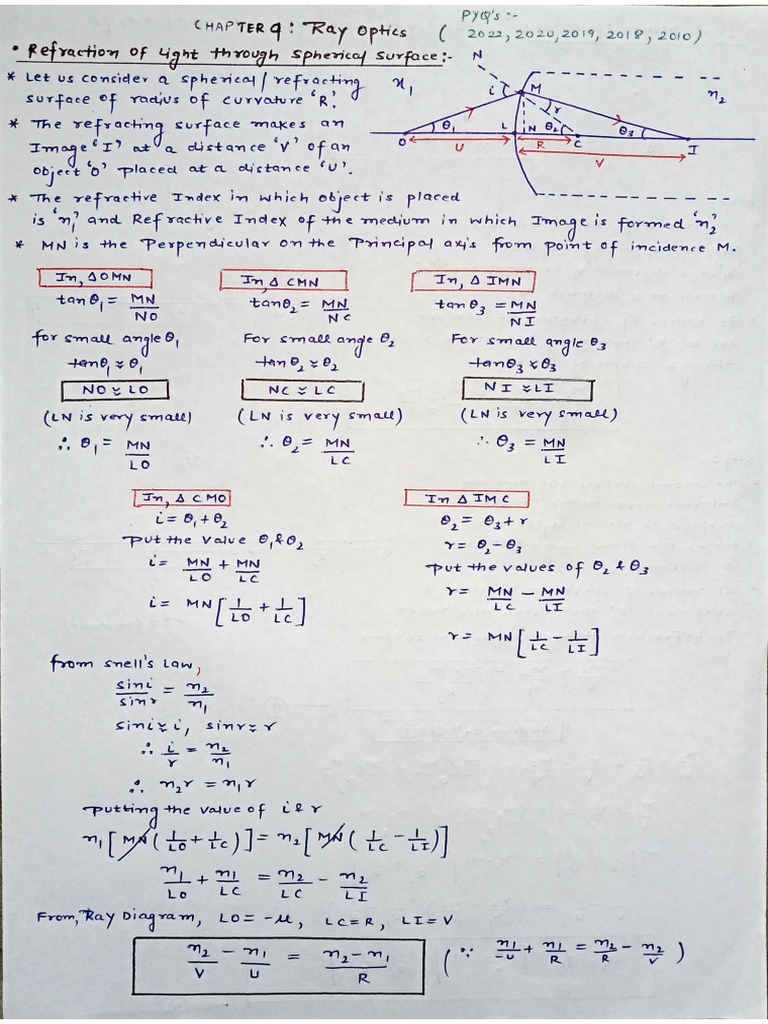 CHAPTER 9: Ray Optics ( PYQ's:-
2022, 2020, 2019, 2018, 2010)
• Refraction of Light through Spherical Surface:-
* Let us consider a spherical/refracting
surface of radius of curvature 'R'.
* The refracting surface makes an
Image 'I' at a distance 'V' of an
object 'O' placed at a distance 'U'.
N
n₁ i M n₂
r
θ₁ L N θ₂ θ₃
O U R C I
V
* The refractive Index in which object is placed
is 'n₁' and Refractive Index of the medium in which Image is formed 'n₂'
* MN is the Perpendicular on the Principal axis from point of incidence M.
In, Δ OMN
tanθ₁ = MN/NO
for small angle θ₁
tanθ₁ ≈ θ₁
NO ≈ LO
(LN is very small)
∴ θ₁ = MN/LO
In, Δ CMN
tanθ₂ = MN/NC
For small angle θ₂
tanθ₂ ≈ θ₂
NC ≈ LC
(LN is very small)
∴ θ₂ = MN/LC
In, Δ IMN
tanθ₃ = MN/NI
For small angle θ₃
tanθ₃ ≈ θ₃
NI ≈ LI
(LN is very small)
∴ θ₃ = MN/LI
In, Δ CMO
i = θ₁ + θ₂
Put the value θ₁ & θ₂
i = MN/LO + MN/LC
i = MN [1/LO + 1/LC]
In Δ IMC
θ₂ = θ₃ + r
r = θ₂ - θ₃
Put the values of θ₂ & θ₃
r = MN/LC - MN/LI
r = MN [1/LC - 1/LI]
from snell's Law,
sini/sinr = n₂/n₁
sini ≈ i, sinr ≈ r
∴ i/r = n₂/n₁
∴ n₂r = n₁r
Putting the value of i & r
n₁ [MN (1/LO + 1/LC)] = n₂ [MN (1/LC - 1/LI)]
n₁/LO + n₁/LC = n₂/LC - n₂/LI
From, Ray Diagram, LO = -u, LC = R, LI = V
n₂/V - n₁/U = n₂-n₁/R (∵ n₁/-U + n₁/R = n₂/R - n₂/V)